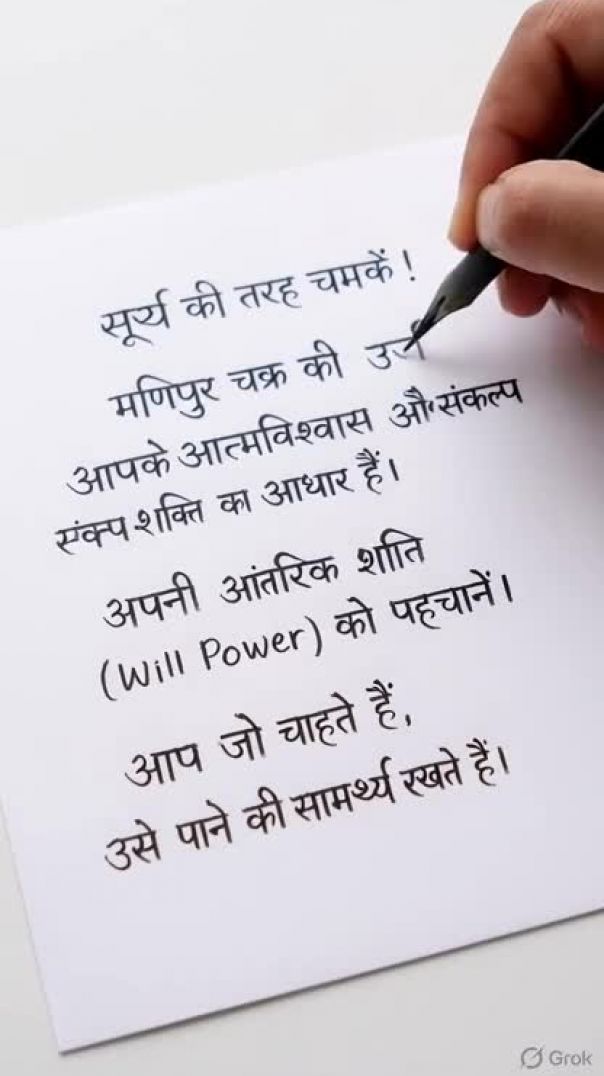 सूर्य की तरह चमकें!
मणिपुर चक्र की
आपके आत्मविश्वास औ संकल्प
संक्प शक्ति का आधार हैं।
अपनी आंतरिक शांति
(Will Power) को पहचानें।
आप जो चाहते हैं,
उसे पाने की सामर्थ्य रखते हैं।
Grok